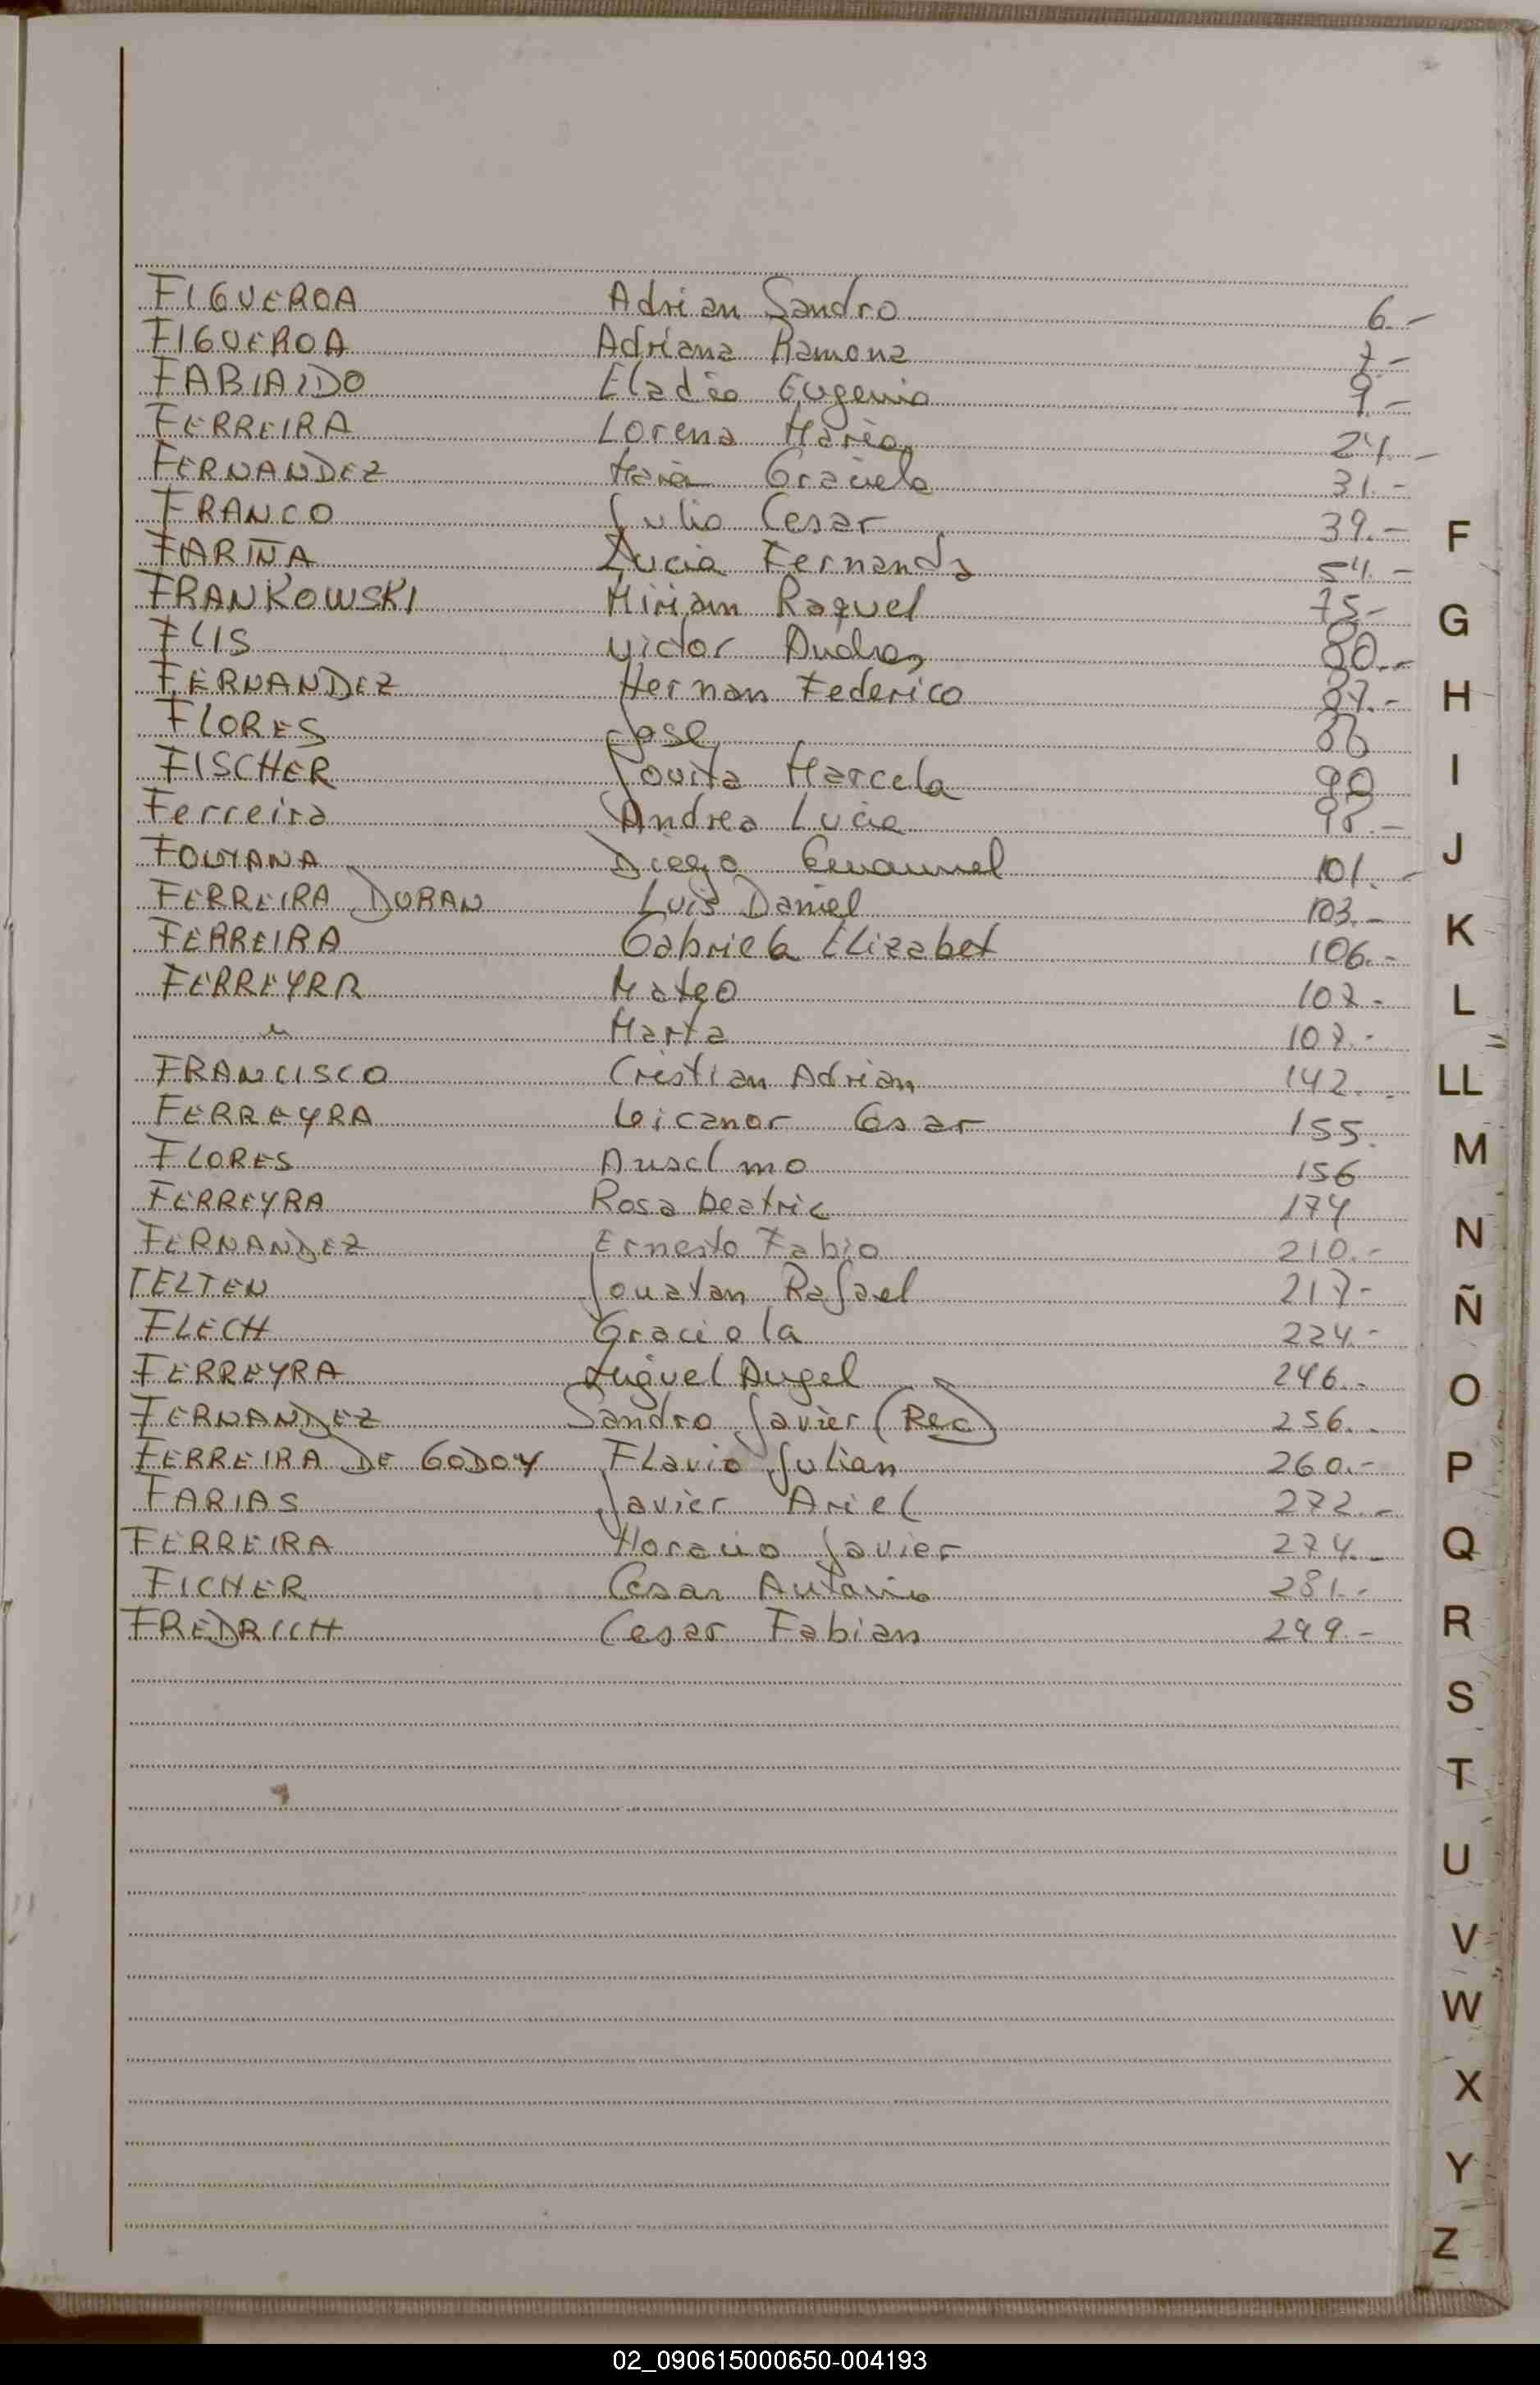 FIGUEROA Adrian Sandro 6.-
FIGUEROA Adriana Ramona 7.-
FABIAIDO Eladio Eugenio 9.-
FERREIRA Lorena Maria 24.-
FERNANDEZ Maria Graciela 31.-
FRANCO Julio Cesar 39.-
FARIÑA Lucia Fernanda 54.-
FRANKOWSKI Miriam Raquel 75.-
FLIS Victor Andres 80.-
FERNANDEZ Hernan Federico 87.-
FLORES Jose
FISCHER Jovita Marcela 90
Ferreira Andrea Lucia 98.-
Diego Emanuel 101.-
FERREIRA DURAN Luis Daniel 103.-
FERREIRA Gabriela Elizabet 106.-
FERREYRA Mateo 107.-
" Marta 107.-
FRANCISCO Cristian Adrian 142.-
FERREYRA Nicanor Cesar 155.
FLORES Anselmo 156
FERREYRA Rosa Beatriz 174
FERNANDEZ Ernesto Fabio 210.-
FELTEN Jonatan Rafael 217-
FLECH Graciela 224.-
FERREYRA Miguel Angel 246.-
FERNANDEZ Sandro Javier (Rec) 256.-
FERREIRA DE GODOY Flavio Julian 260.-
FARIAS Javier Ariel 272.-
FERREIRA Horacio Javier 274.-
FICHER Cesar Antonio 281.-
FREDRICH Cesar Fabian 299.-
F
G
H
I
J
K
L
LL
M
N
Ñ
O
P
Q
R
S
T
U
V
W
X
Y
Z
02_090615000650-004193